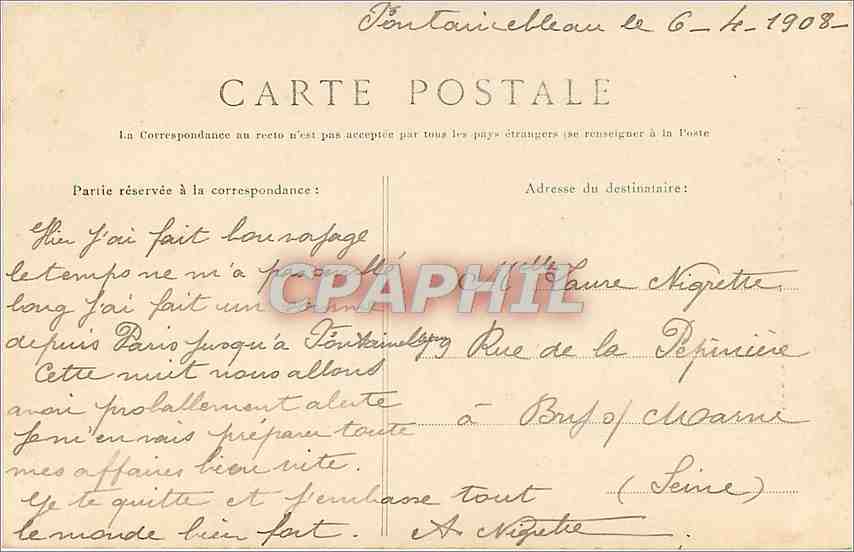 Fontainebleau le 6-4-1908-
CARTE POSTALE
La Correspondance au recto n'est pas acceptée par tous les pays étrangers (se renseigner à la Poste
Partie réservée à la correspondance :
Adresse du destinataire :
Hier j'ai fait bon voyage
le temps ne m'a pas
long j'ai fait un
depuis Paris jusqu'à Fontainebleau
Cette nuit nous allons
avoir probablement alerte
Je m'en vais préparer toute
mes affaires bien vite.
Je te quitte et j'embrasse tout
le monde bien fort. A. Nigrette
Mlle Laure Nigrette
9 Rue de la Pépinière
à Bry s/ Marne
(Seine)
CPAPHIL